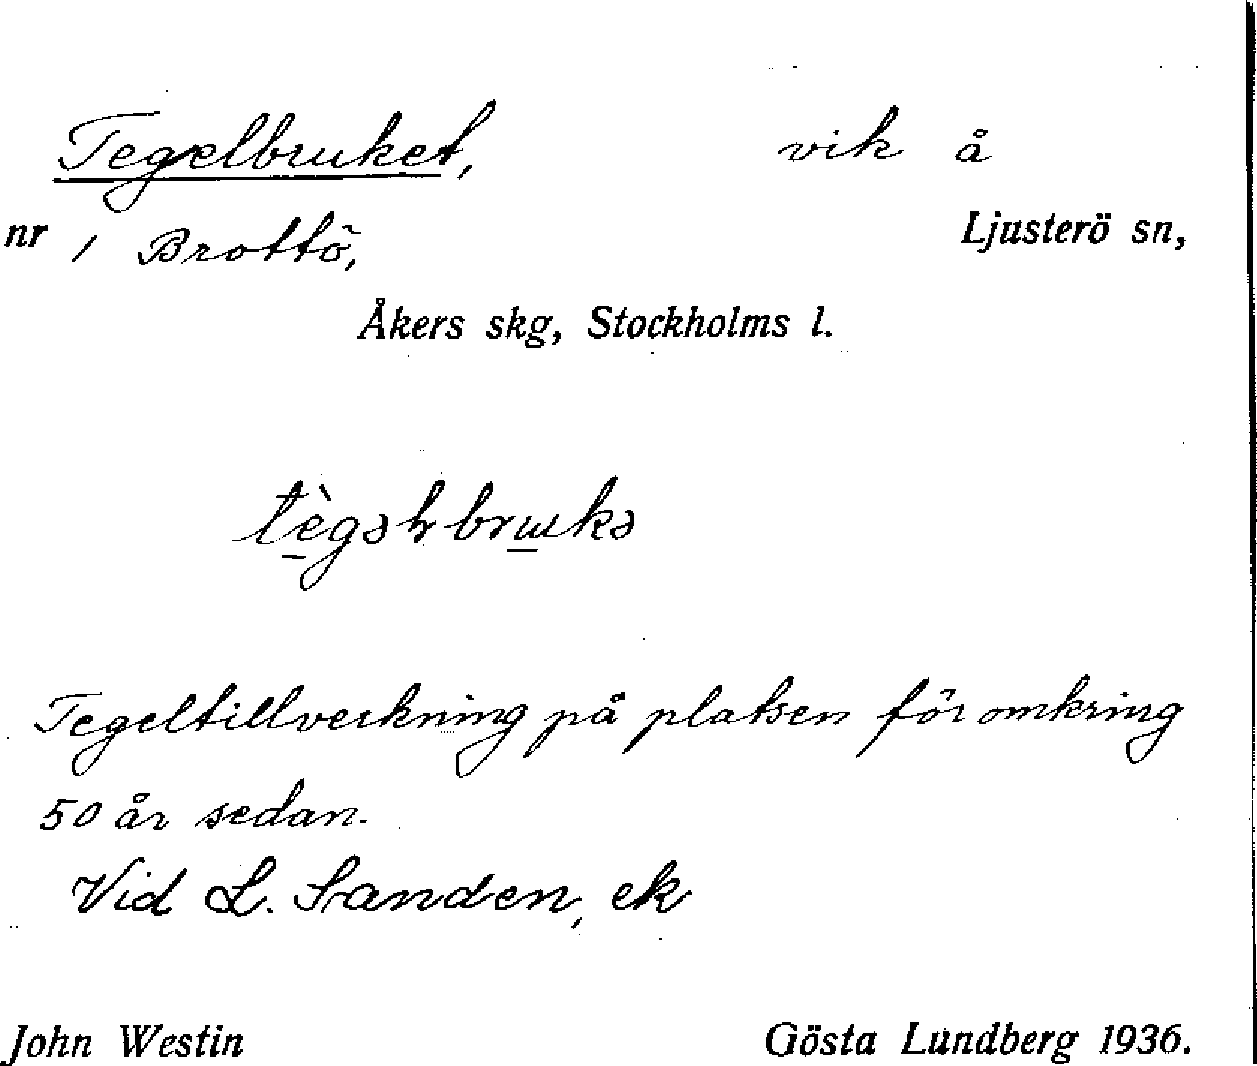 Tegelbruket, vik å
nr 1 Brottö, Ljusterö sn,
Åkers skg, Stockholms l.
Tegeltillverkning på platsen för omkring
50 år sedan.
Vid L. Sanden, ek
John Westin Gösta Lundberg 1936.